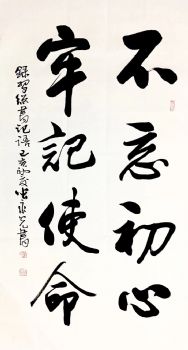 不忘初心
牢記使命
錄習總書記語乙亥